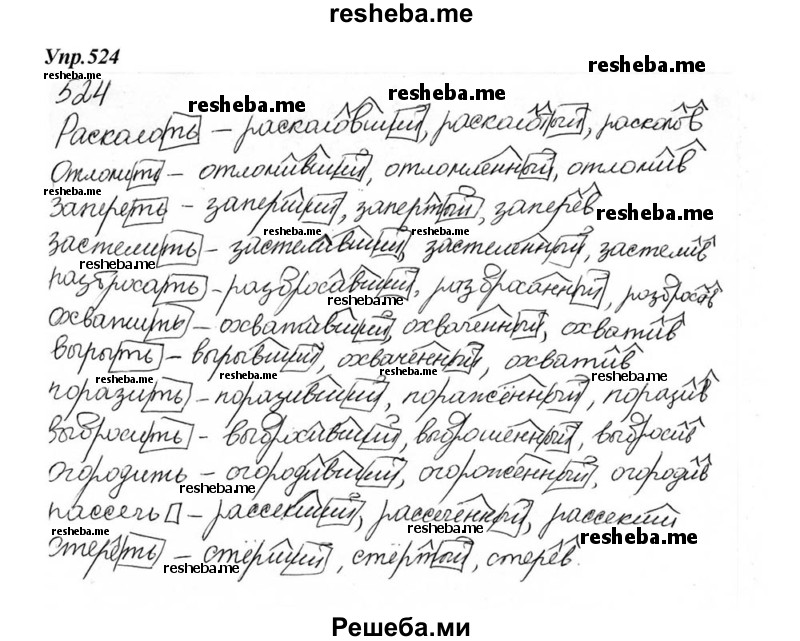 resheba.me
Упр.524
resheba.me
resheba.me
524
resheba.me
resheba.me
Расколоть – расколовший, расколотый, расколов
Отломить – отломивший, отломленный, отломив
resheba.me
Запереть – заперший, запертый, заперев
resheba.me
resheba.me
resheba.me
застелить – застеливший, застеленный, застелив
resheba.me
разбросать – разбросавший, разбросанный, разбросав
resheba.me
охватить – охвативший, охваченный, охватив
вырыть – вырывший, охваченный, охватив
resheba.me
resheba.me
resheba.me
resheba.me
поразить – поразивший, поражённый, поразив
выбросить – выбросивший, выброшенный, выбросив
огородить – огородивший, огороженный, огородив
resheba.me
рассечь – рассекший, рассечённый, рассекший
resheba.me
resheba.me
resheba.me
стереть – стёрший, стёртый, стерев.
resheba.me
Решеба.ми